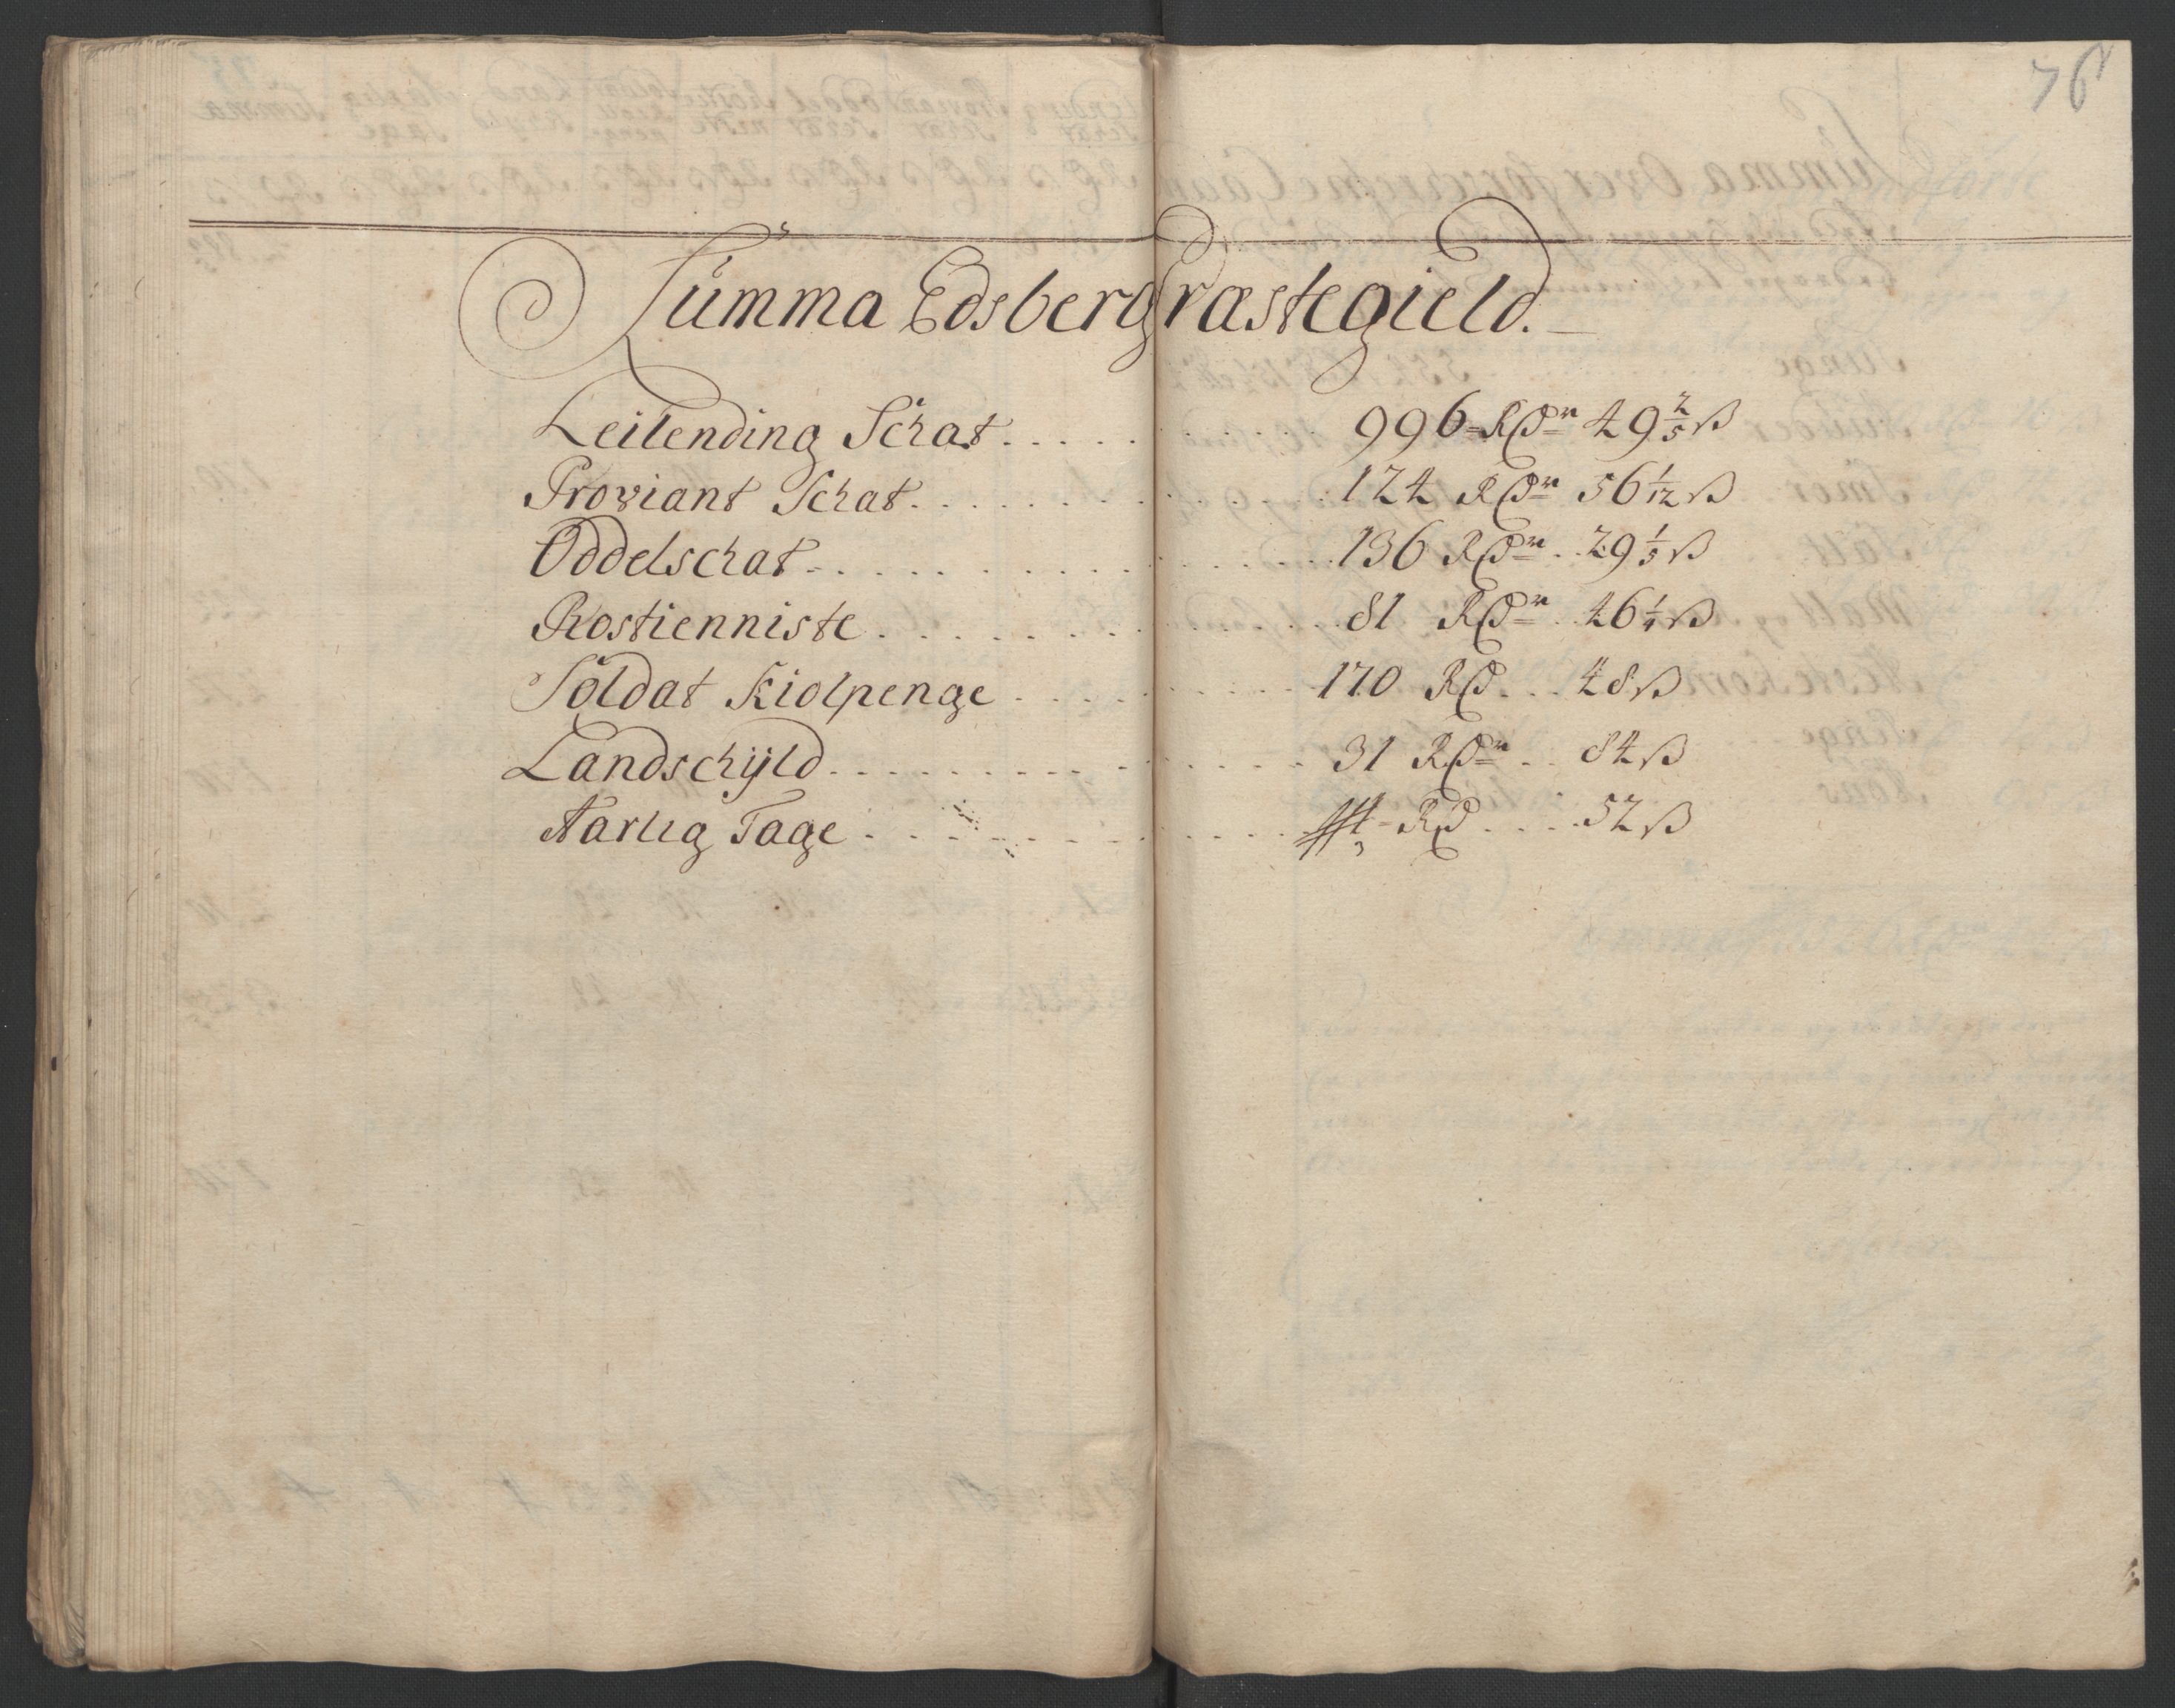 76
Summa Edsberg Præstegield.
Leilending Schat . . . . . 996 Rdr 49 2/5 ß
Proviant Schat . . . . . 124 Rdr 56 1/12 ß
Oddelschat . . . . . 136 Rdr 29 1/5 ß
Rostienniste . . . . . 81 Rdr 46 1/4 ß
Soldat Kiolpenge . . . . . 170 Rd 48 ß
Landschÿld . . . . . 31 Rdr 84 ß
Aarlig Tage . . . . . Rd 52 ß